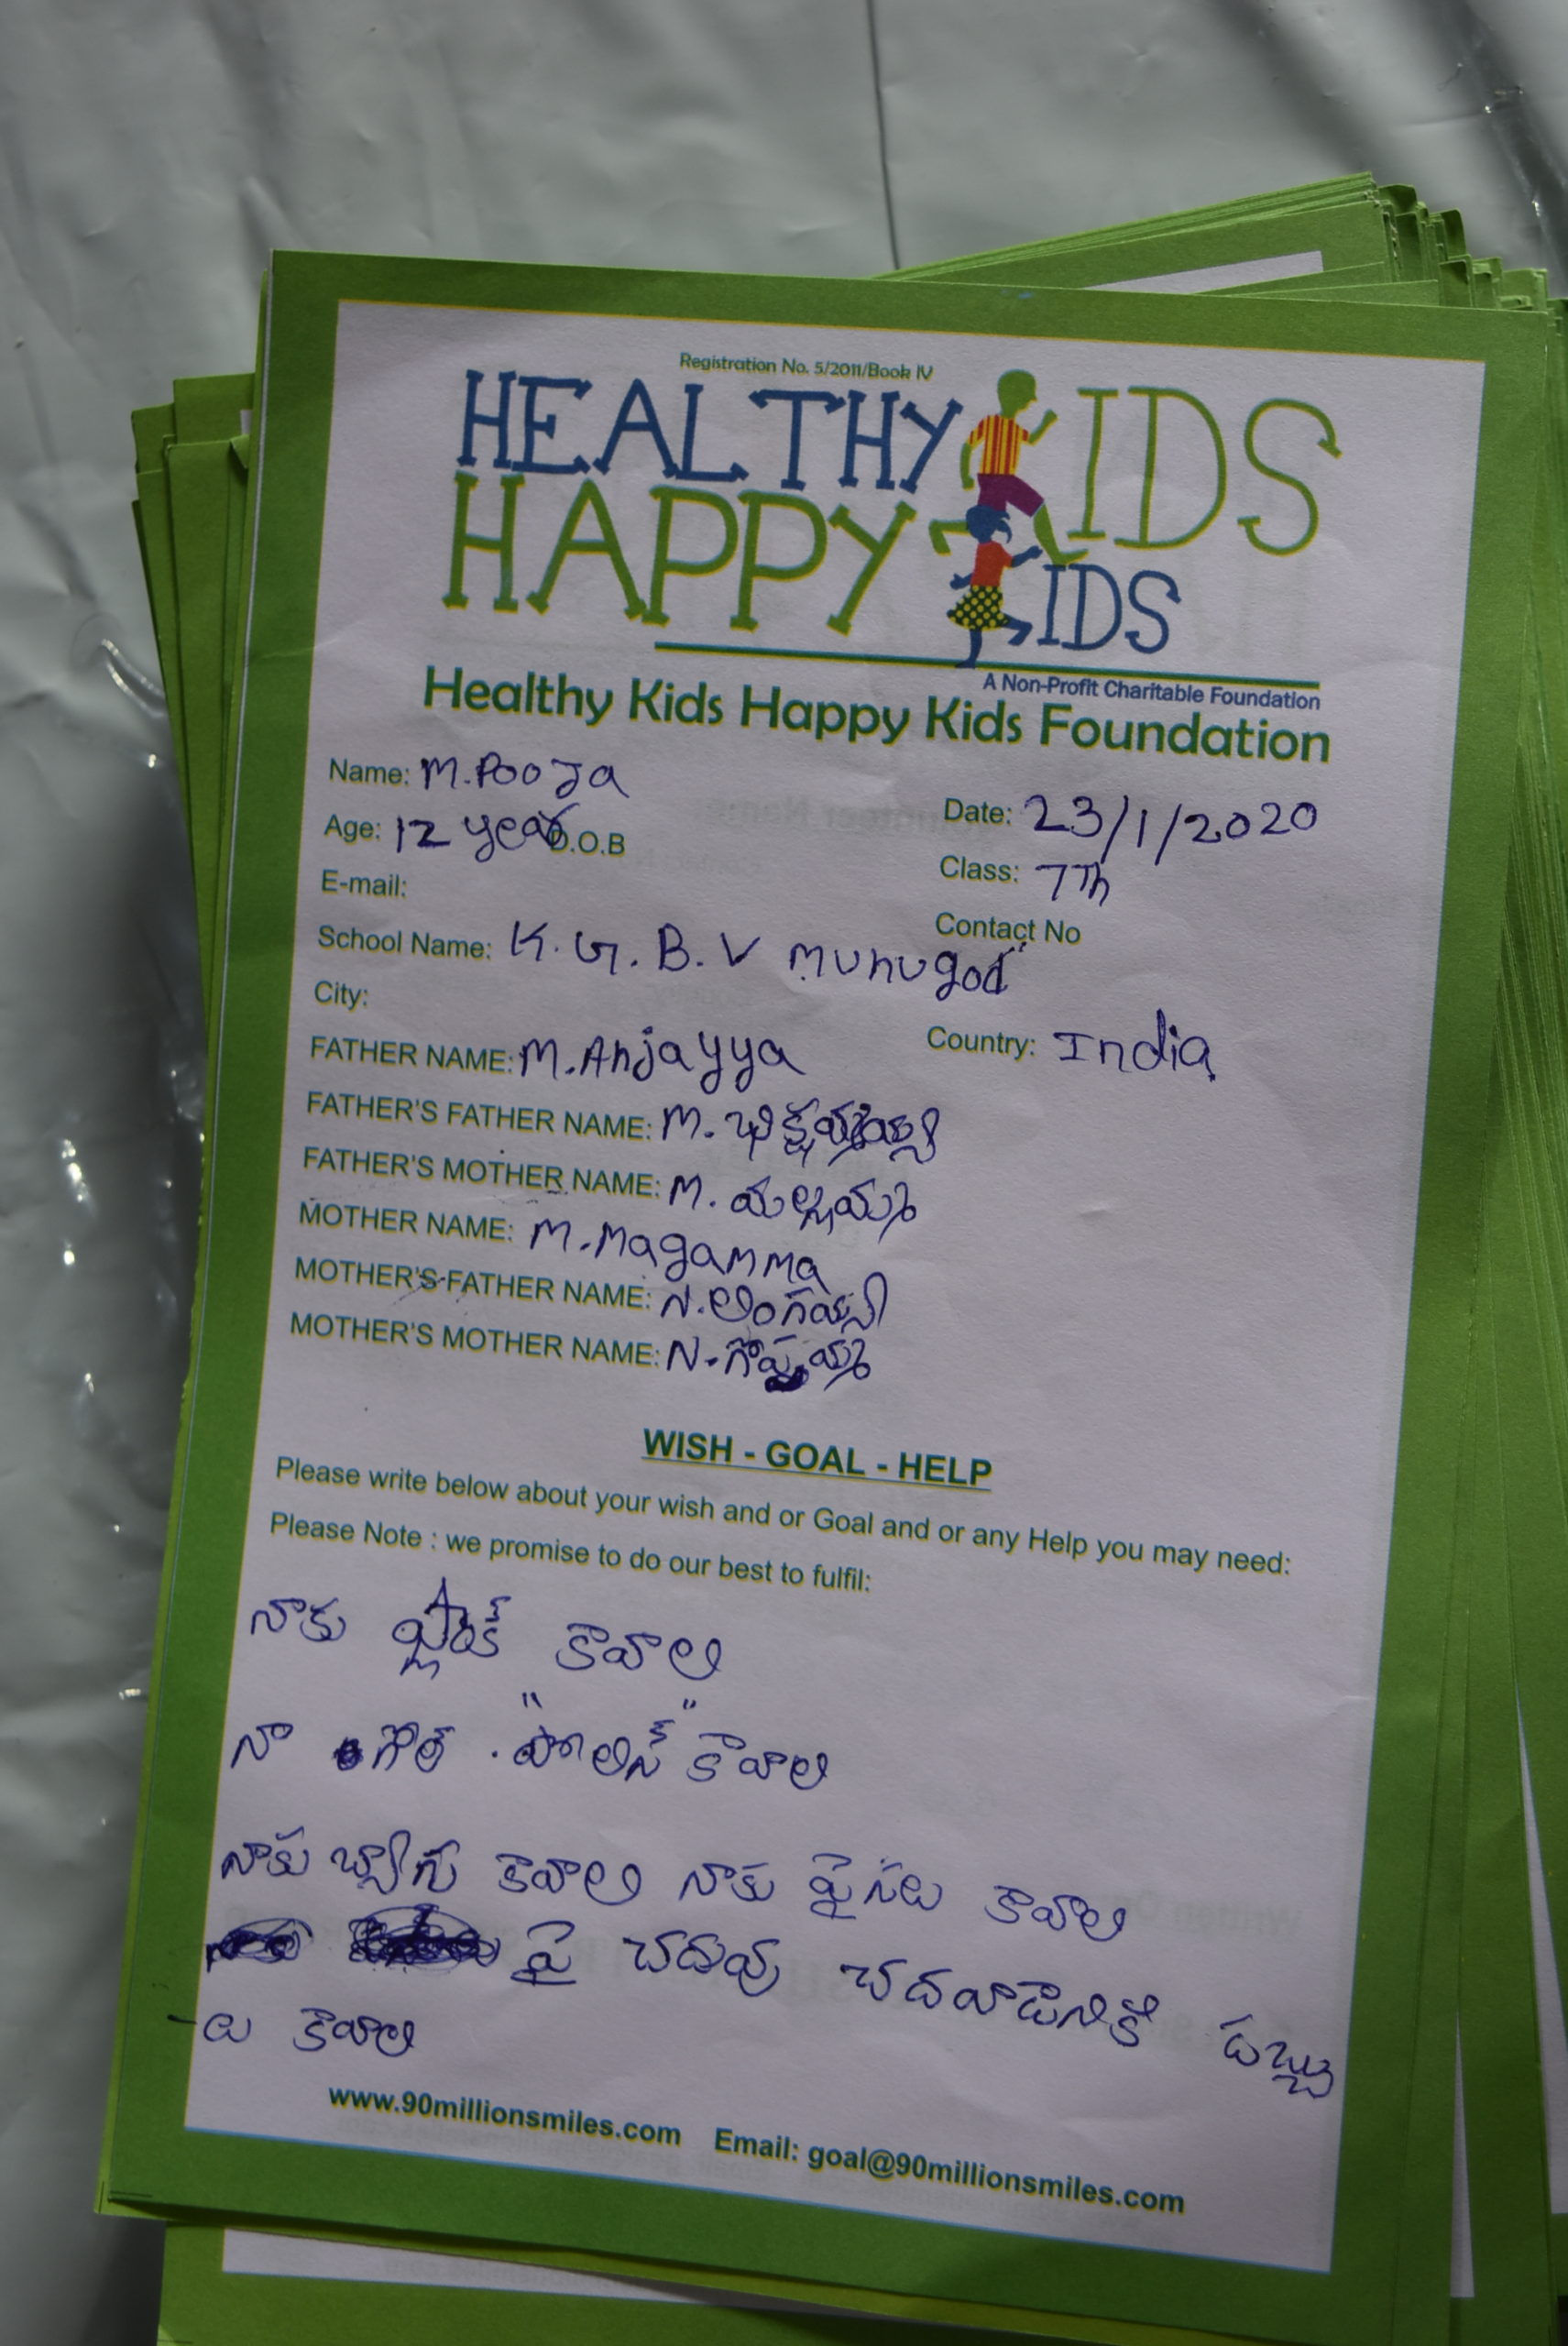 Registration No. 5/2011/Book IV
HEALTHY KIDS
HAPPY KIDS
A Non-Profit Charitable Foundation
Healthy Kids Happy Kids Foundation
Name: M. Pooja
Date: 23/1/2020
Age: 12 year D.O.B
Class: 7Th
E-mail:
Contact No
School Name: K. G. B. V munugod
City:
Country: India
FATHER NAME: M. Anjayya
FATHER'S FATHER NAME: M.
FATHER'S MOTHER NAME: M. యల్లమ్మ
MOTHER NAME: M. Magamma
MOTHER'S FATHER NAME: N. లింగయ్య
MOTHER'S MOTHER NAME: N. గోపమ్మ
WISH - GOAL - HELP
Please write below about your wish and or Goal and or any Help you may need:
Please Note : we promise to do our best to fulfil:
నాకు కావాలి
నా గోల్ . "పోలిస్" కావాలి
నాకు బ్యాగు కావాలి నాకు పైసలు కావాలి
పై చదువు చదవాడానికి డబ్బు
-లు కావాలి
www.90millionsmiles.com Email: goal@90millionsmiles.com